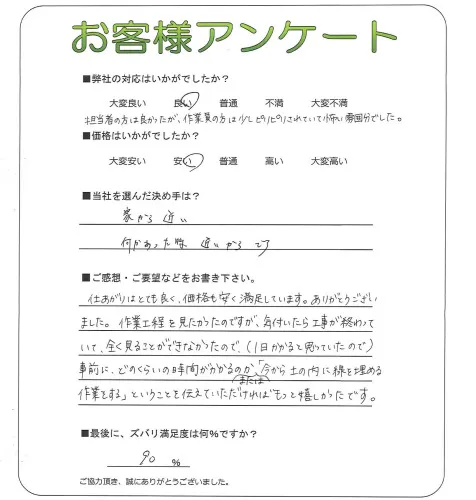 お客様アンケート
■弊社の対応はいかがでしたか？
大変良い　良い　普通　不満　大変不満
担当者の方は良かったが、作業員の方は少しピリピリされていて怖い雰囲気でした。
■価格はいかがでしたか？
大変安い　安い　普通　高い　大変高い
■当社を選んだ決め手は？
家から近い
何かあった時 近いからです
■ご感想・ご要望などをお書き下さい。
仕あがりはとても良く、価格も安く満足しています。ありがとうござい
ました。作業工程を見たかったのですが、気付いたら工事が終わって
いて、全く見ることができなかったので、(1日かかると思っていたので)
事前に、どのくらいの時間がかかるのか、「今から土の内に線を埋める
または
作業をする」ということを伝えていただければもっと嬉しかったです。
■最後に、ズバリ満足度は何％ですか？
90 ％
ご協力頂き、誠にありがとうございました。